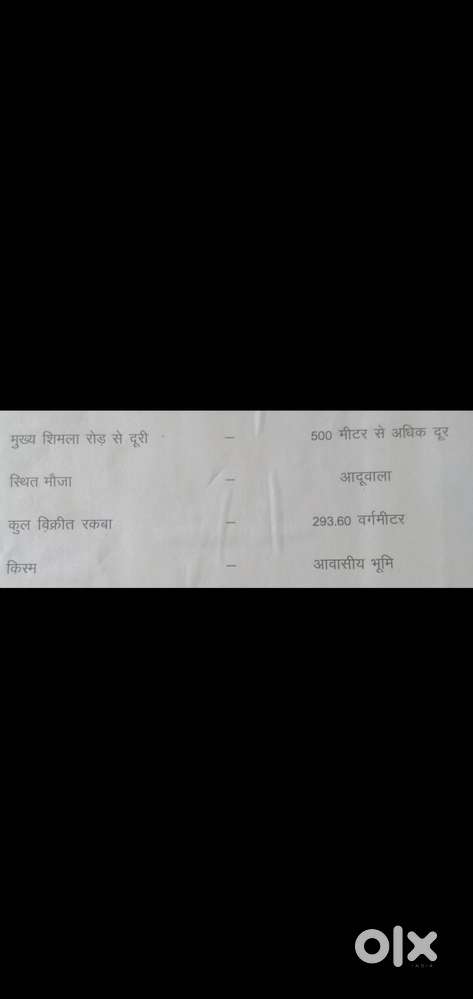 मुख्य शिमला रोड़ से दूरी – 500 मीटर से अधिक दूर
स्थित मौजा – आदूवाला
कुल विक्रीत रकबा – 293.60 वर्गमीटर
किस्म – आवासीय भूमि
olx
INDIA